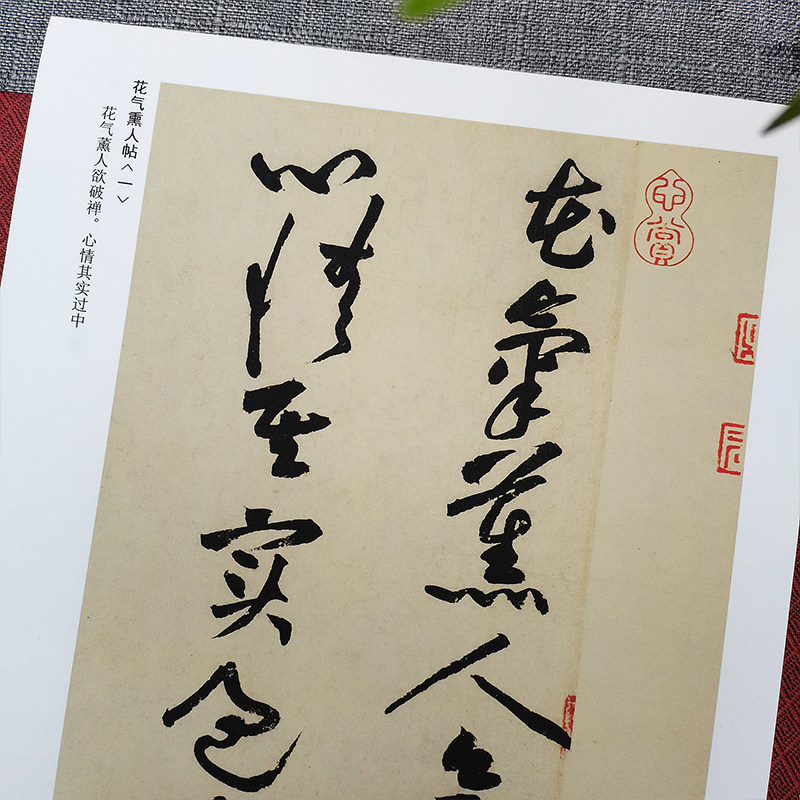 花氣薰人
心情其实過
花气熏人帖〈一〉
花气薰人欲破禅。心情其实过中